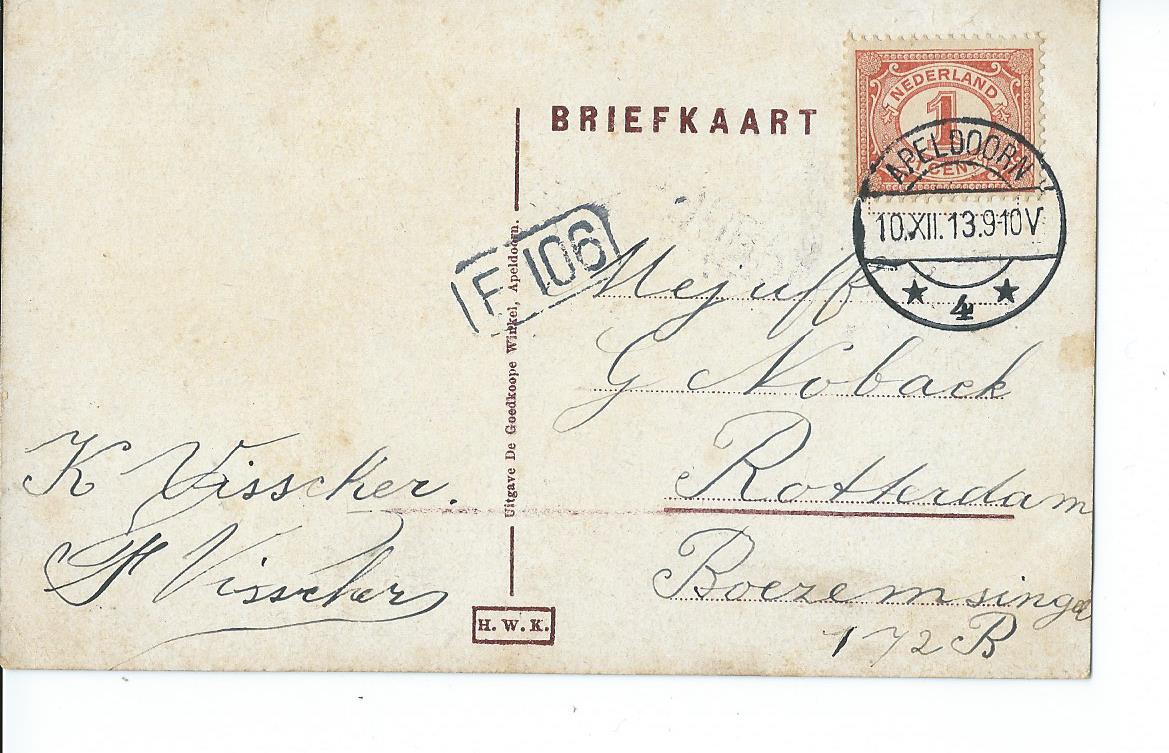 BRIEFKAART
NEDERLAND
1
CENT
APELDOORN
10.XII.13.9-10V
4
F 106
Mejuff
G Noback
Rotterdam
Boezemsingel
172 B
Uitgave De Goedkoope Winkel, Apeldoorn.
K Visscher.
Visscher
H. W. K.